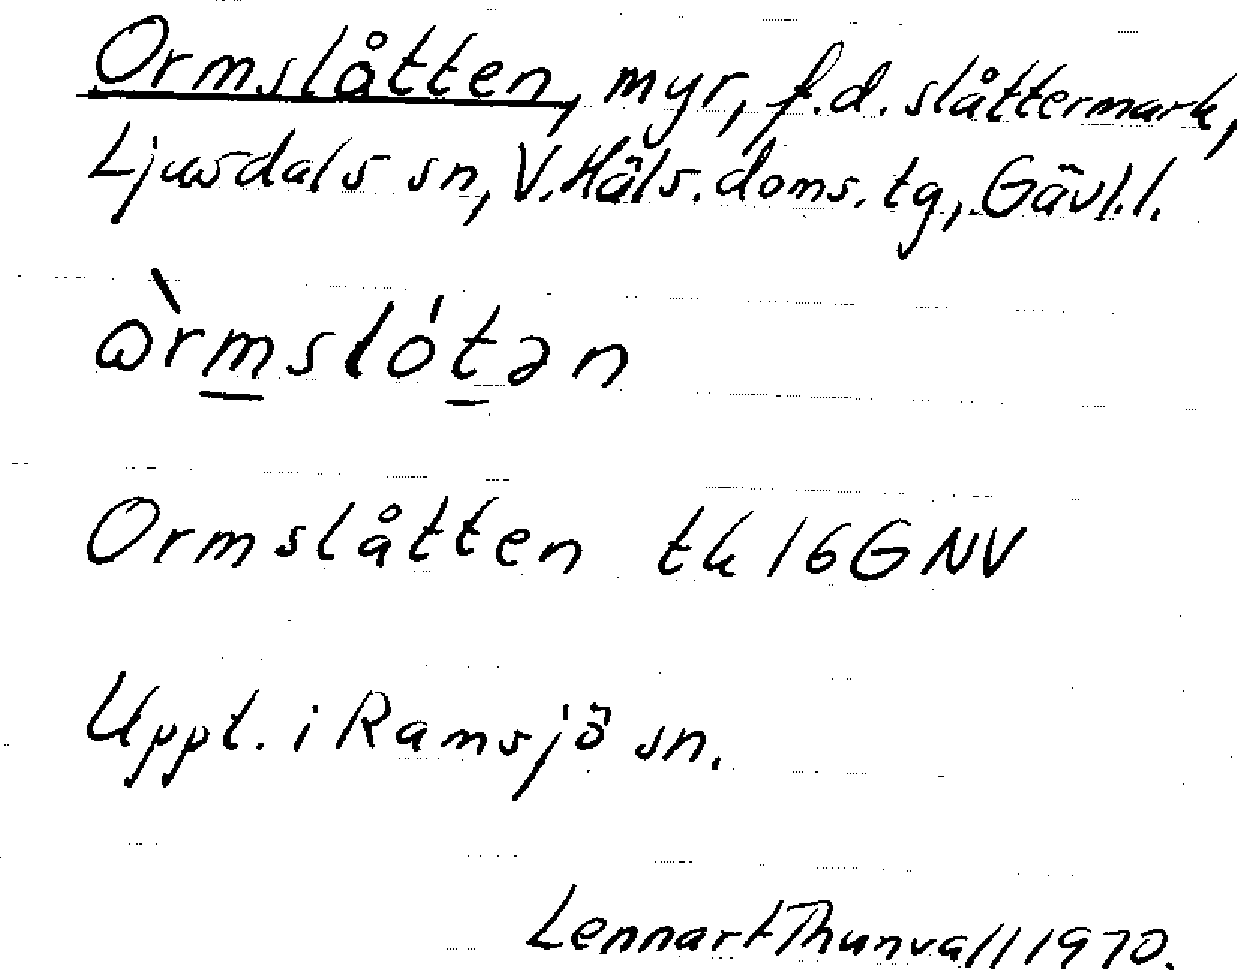 Ormslåtten, myr, f.d. slåttermark,
Ljusdals sn, V. Häls. doms. tg, Gävl. l.
ɷ̀rmslótən
Ormslåtten tk 16G NV
Uppt. i Ramsjö sn.
Lennart Thunvall 1970.